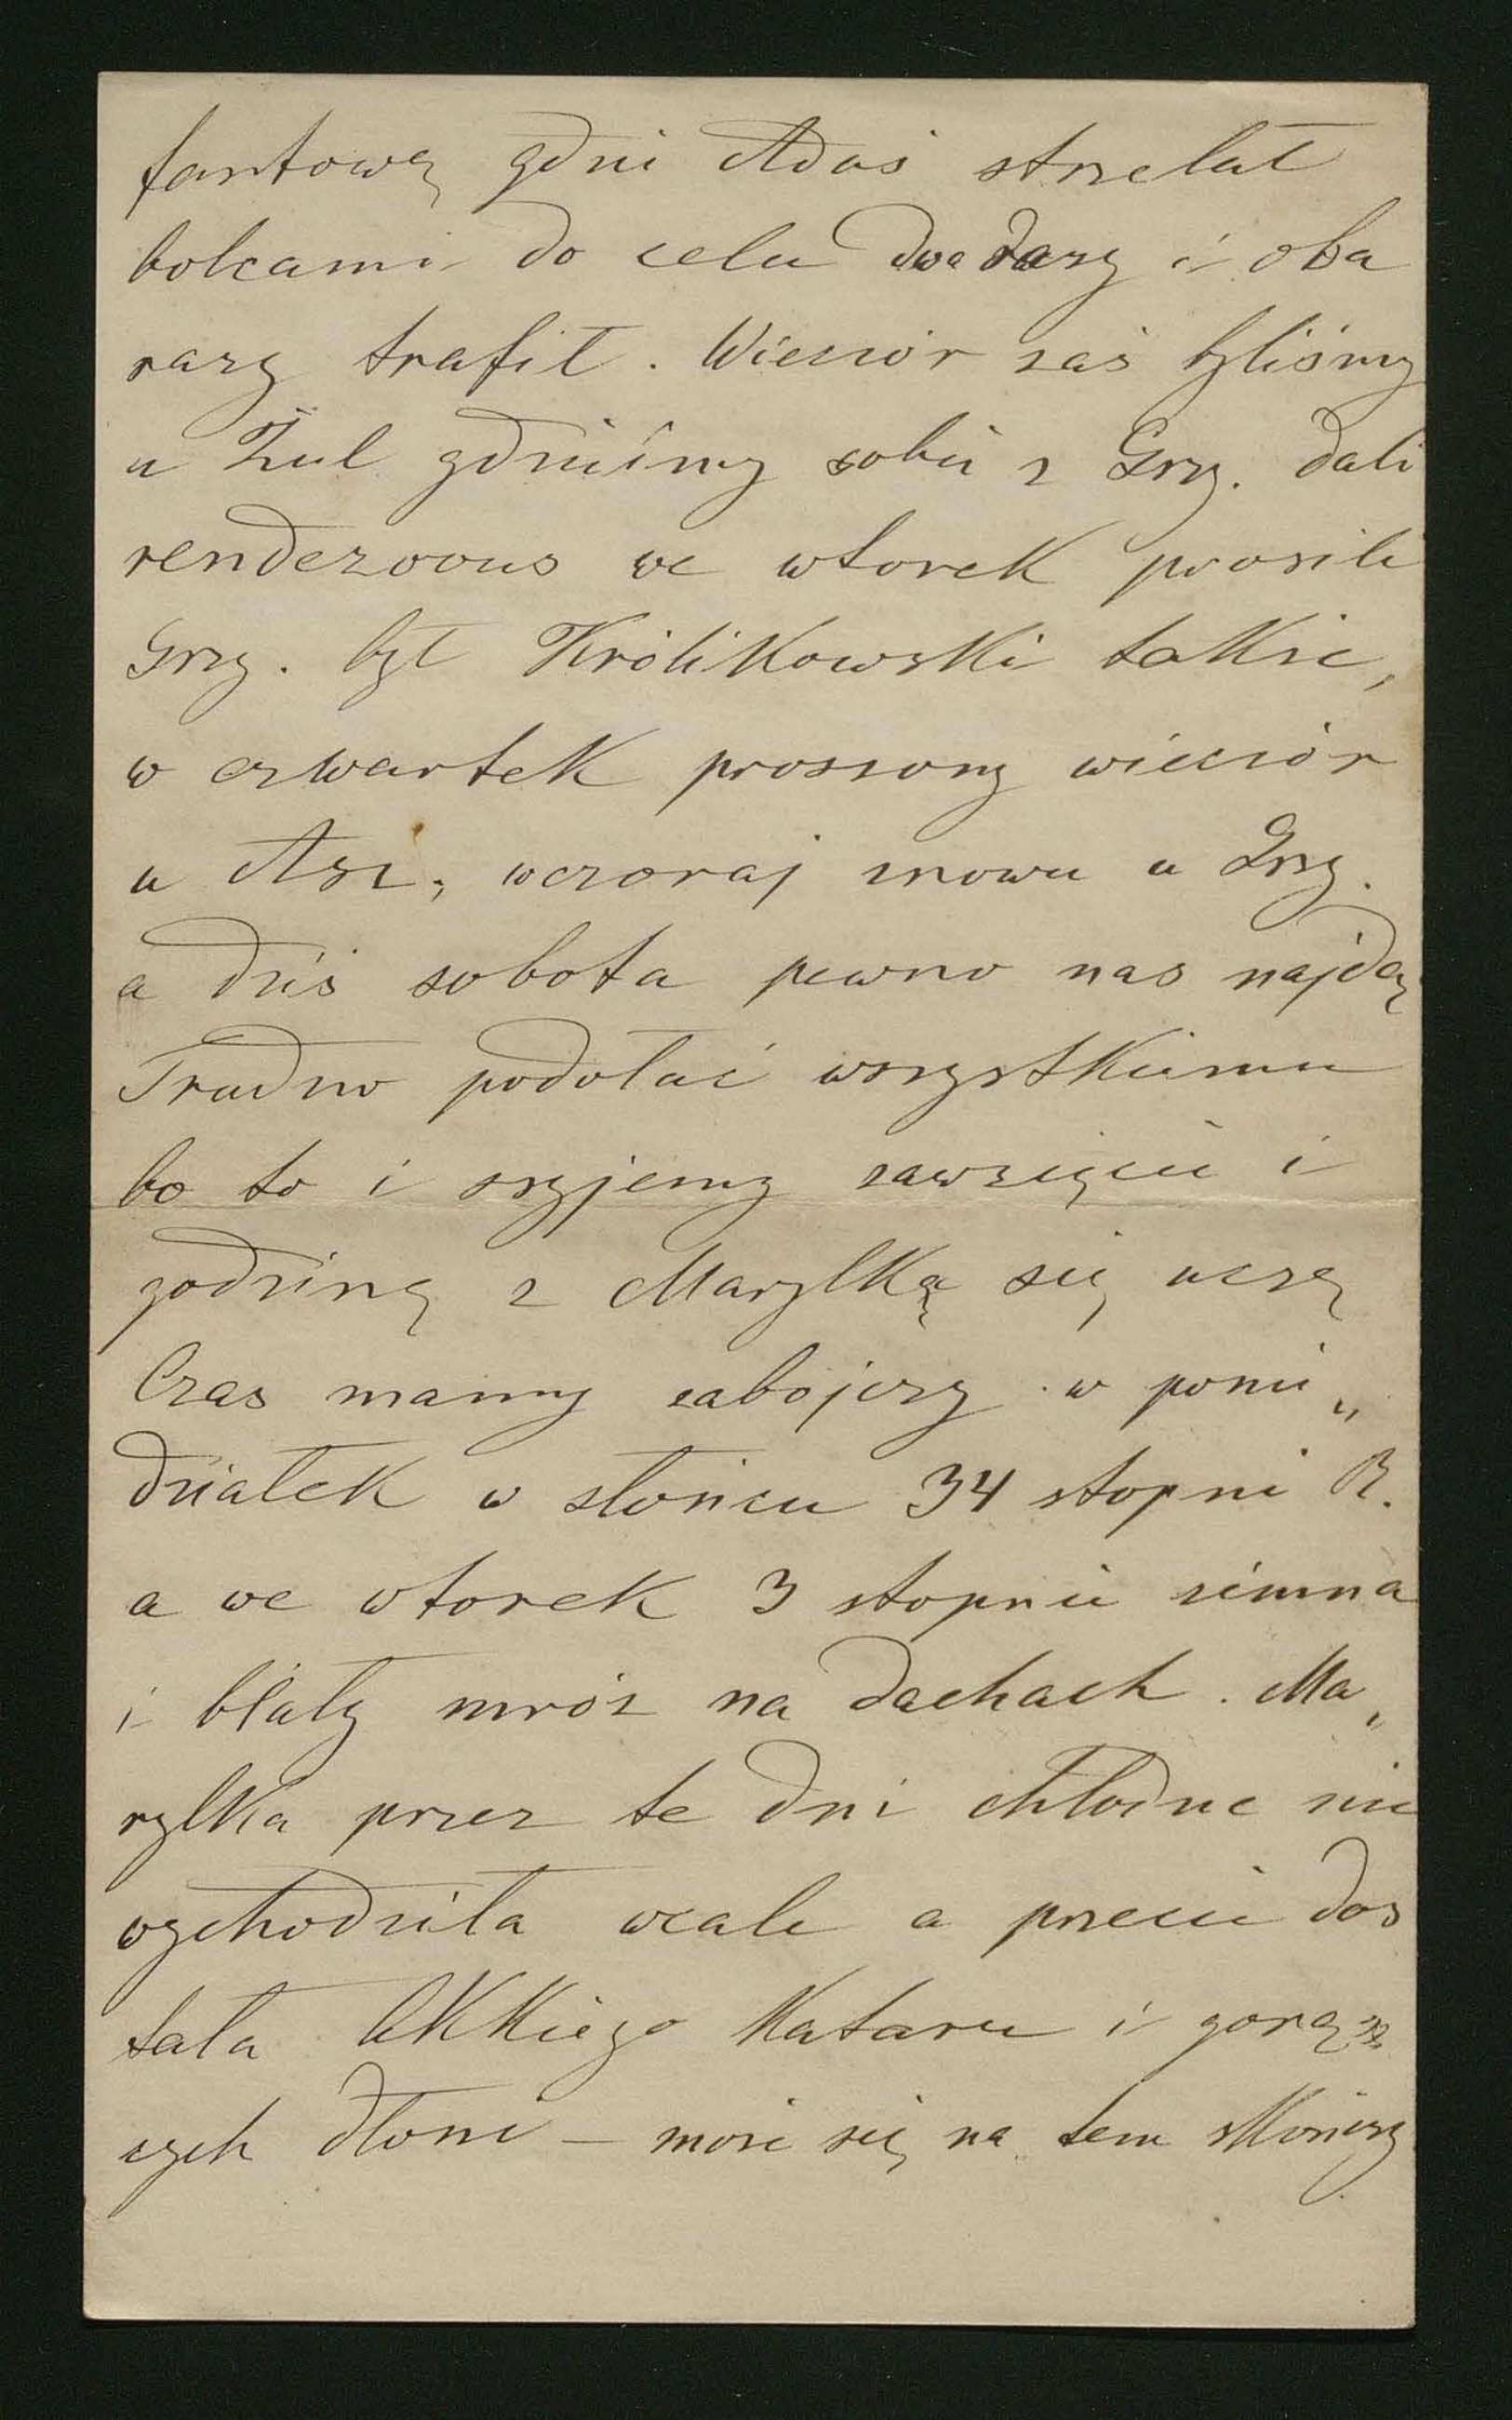 fantową gdzie Adaś strzelał
bolcami do celu dwa razy i oba
razy trafił. Wieczór zaś byliśmy
u Żul gdzieśmy sobie z Grzy. dali
rendezvous we wtorek prosili
Grzy. był Królikowski także,
w czwartek proszony wieczór
u Asz; wczoraj znowu u Grzy.
a dziś sobota pewno nas najdą
Trudno podołać wszystkiemu
bo to i szyjemy zawzięcie i
godzinę z Marylką się uczę
Czas mamy zabójczy w ponie„
działek w słońcu 34 stopni R.
a we wtorek 3 stopnie zimna
i biały mróz na dachach. Ma„
rylka przez te dni chłodne nie
wychodziła wcale a przecie dos
tała lekkiego kataru i gorą
cych dłoni – może się na tem skończy